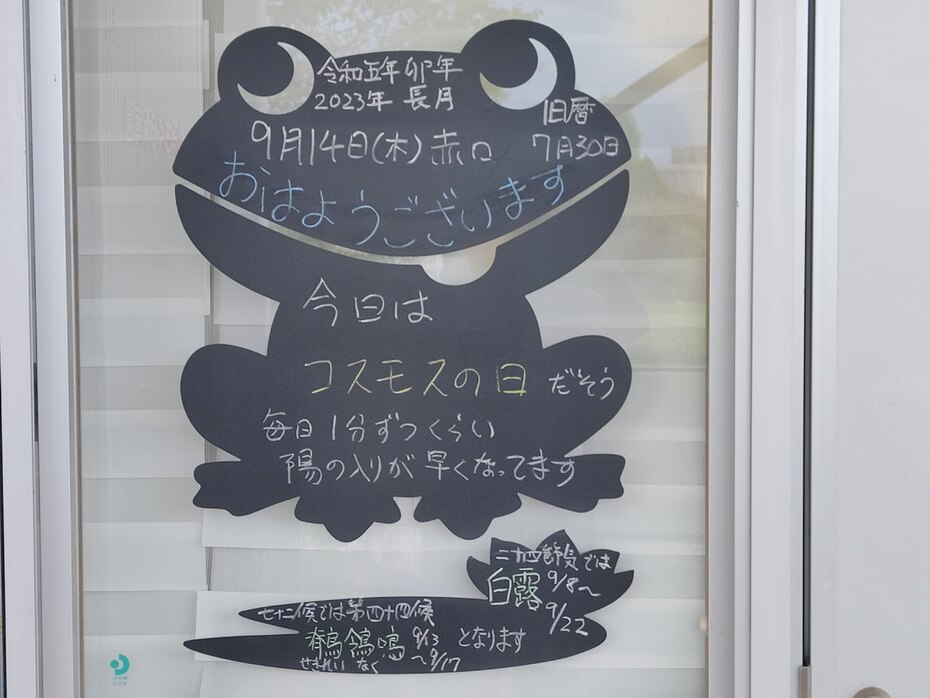 令和五年 卯年
2023年 長月
旧暦
9月14日(木) 赤口 7月30日
おはようございます
今日は
コスモスの日 だそう
毎日1分ずつくらい
陽の入りが早くなってます
二十四節気では
白露 9/8〜
9/22
七十二候では第四十四候
鶺鴒鳴 9/13
〜9/17 となります
せきれい なく